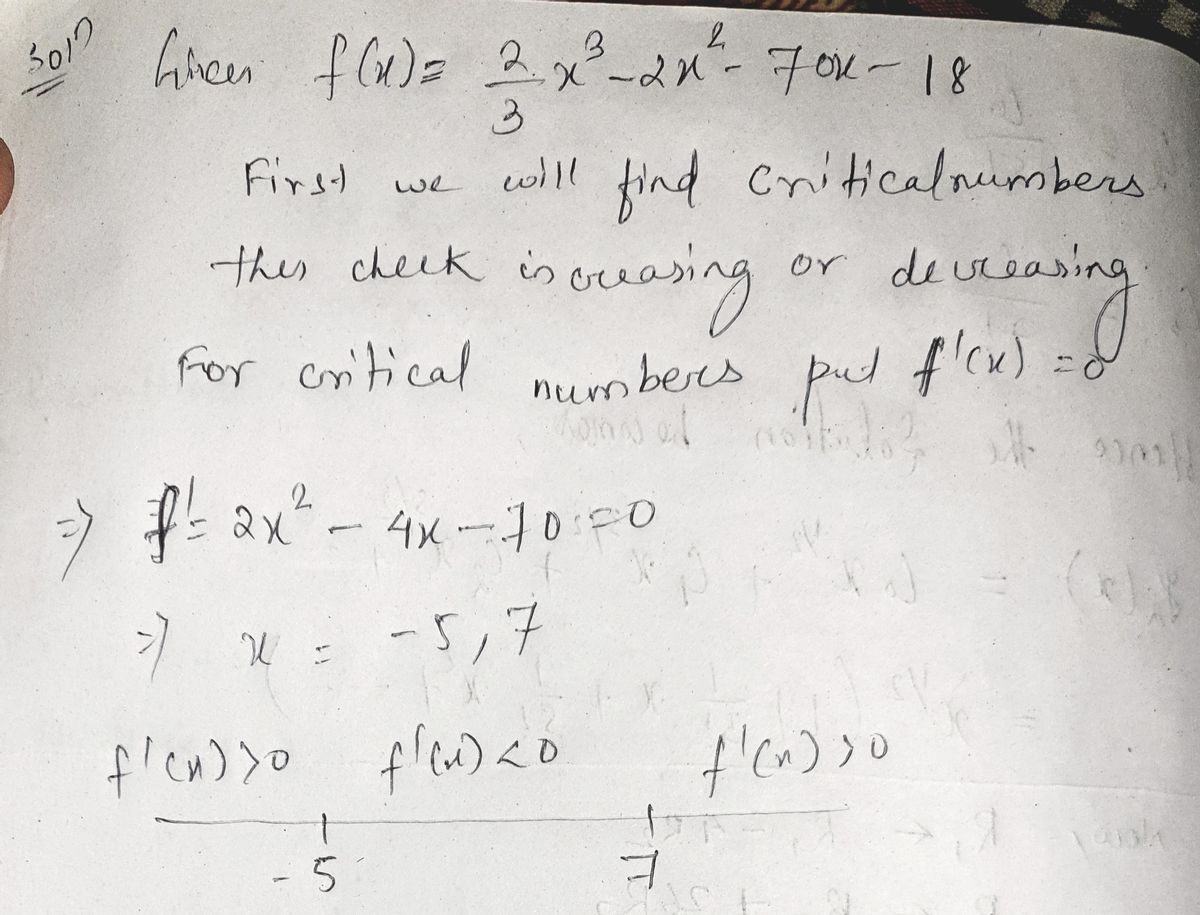 Soln Given f(x) = 2/3 x³ - 2x² - 70x - 18
First we will find critical numbers
then check increasing or decreasing
For critical numbers put f'(x) = 0
=> f' = 2x² - 4x - 70 = 0
=> x = -5, 7
f'(x) > 0 f'(x) < 0 f'(x) > 0
-5 7